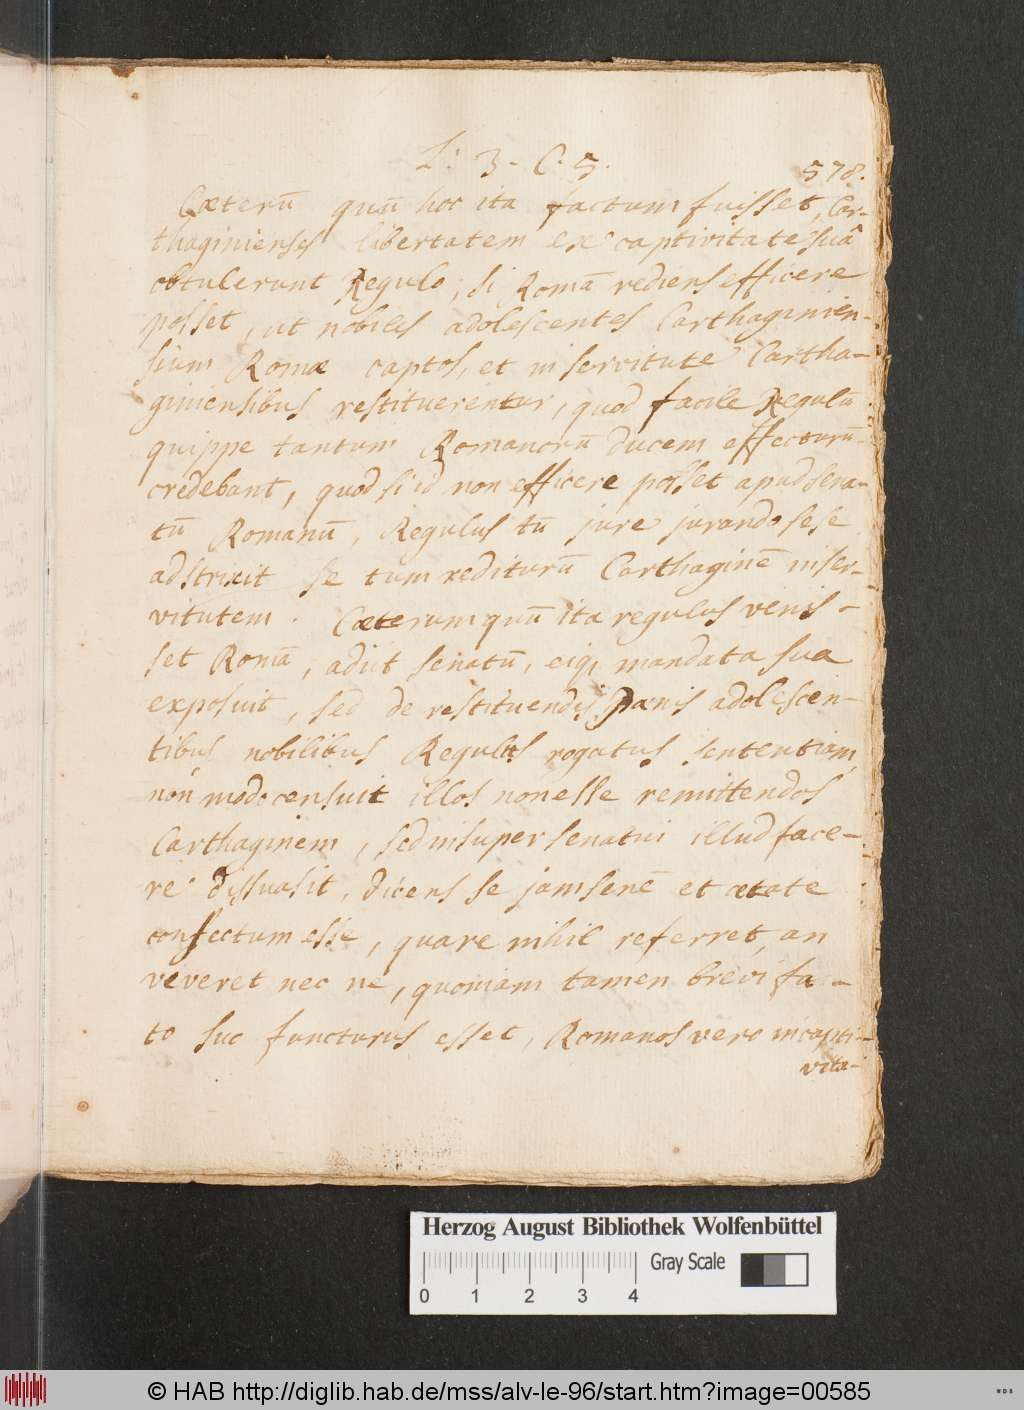 L: 3. C. 5.
578.
Cæterū quū hoc ita factum fuisset, Car-
thaginienses libertatem ex captivitate suâ
obtulerunt Regulo, si Romā rediens efficere
posset, ut nobiles adolescentes Carthaginien-
sium Romæ captos, et in servitute Cartha-
giniensibus restituerentur, quod facile Regulū
quippe tantum Romanorū ducem effecturū
credebant, quod si id non efficere posset apud sena-
tū Romanū, Regulus tū jure jurando sese
adstrixit se tum rediturū Carthaginē in ser-
vitutem. Cæterum quū ita regulus venis-
set Romā, adiit senatū, eiq, mandata sua
exposuit, sed de restituendis Pænis adolescen-
tibus nobilibus Regulus rogatus sententiam,
non modo censuit illos non esse remittendos
Carthaginem, sed insuper senatui illud face-
re dissuasit, dicens se jam senē et ætate
confectum esse, quare nihil referret, an
viveret nec ne, quoniam tamen brevi fa-
to suo functurus esset, Romanos vero in capti-
vita-
Herzog August Bibliothek Wolfenbüttel
Gray Scale
0 1 2 3 4
© HAB http://diglib.hab.de/mss/alv-le-96/start.htm?image=00585